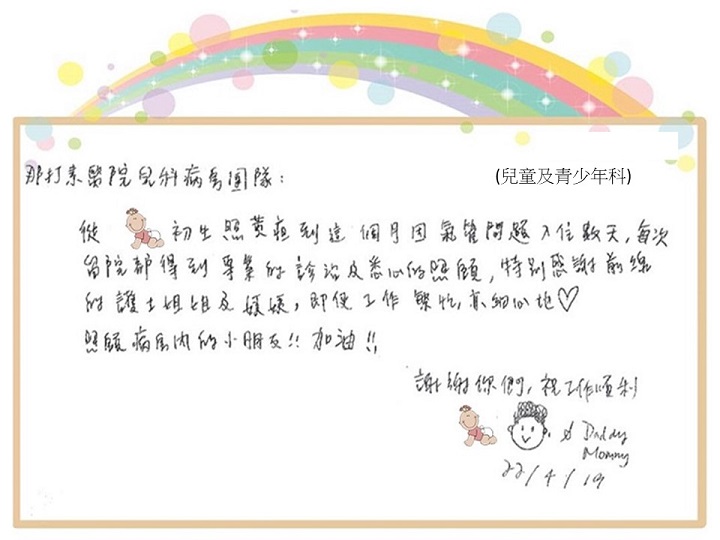 那打素醫院兒科病房團隊：
(兒童及青少年科)
從 初生照黃疸到這個月因氣管問題入住數天，每次
留院都得到專業的診治及悉心的照顧，特別感謝前線
的護士姐姐及嫂嫂，即使工作繁忙，亦細心地♡
照顧病房內的小朋友!! 加油!!
謝謝你們，祝工作順利
& Daddy
Mommy
22/4/19